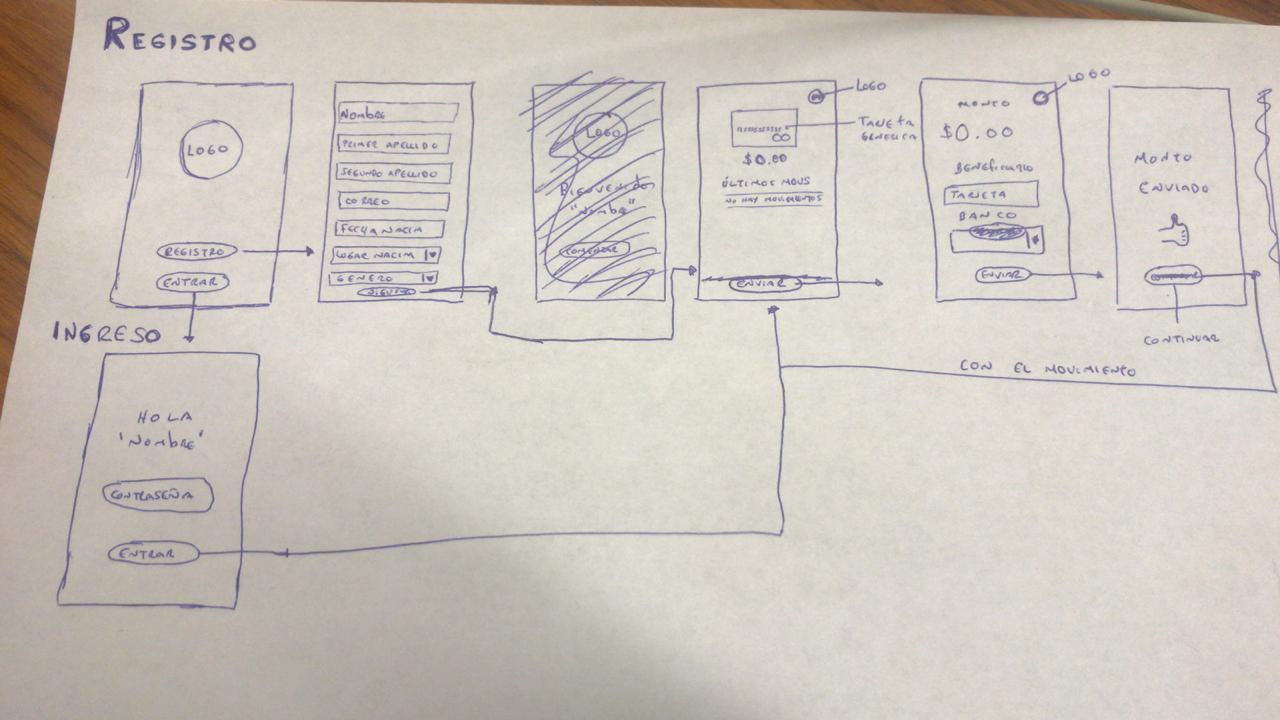 REGISTRO
LOGO
REGISTRO
ENTRAR
NOMBRE
PRIMER APELLIDO
SEGUNDO APELLIDO
CORREO
FECHA NACIM
LUGAR NACIM
GENERO
LOGO
BIENVENIDO
"NOMBRE"
COMENZAR
LOGO
TARJETA
GENERICA
00
$0.00
ÚLTIMOS MOVS
NO HAY MOVIMIENTOS
ENVIAR
LOGO
MONTO
$0.00
BENEFICIARIO
TARJETA
BANCO
ENVIAR
MONTO
ENVIADO
CONTINUAR
CON EL MOVIMIENTO
INGRESO
HOLA
"NOMBRE"
CONTRASEÑA
ENTRAR